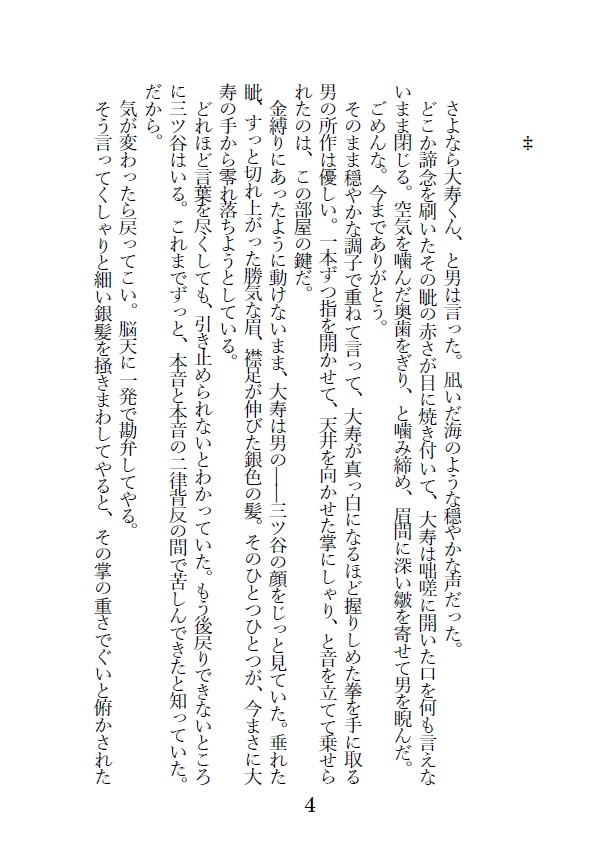 ‡
さよなら大寿くん、と男は言った。凪いだ海のような穏やかな声だった。
どこか諦念を刷いたその眦の赤さが目に焼き付いて、大寿は咄嗟に開いた口を何も言えな
いまま閉じる。空気を噛んだ奥歯をぎり、と噛み締め、眉間に深い皺を寄せて男を睨んだ。
ごめんな。今までありがとう。
そのまま穏やかな調子で重ねて言って、大寿が真っ白になるほど握りしめた拳を手に取る
男の所作は優しい。一本ずつ指を開かせて、天井を向かせた掌にしゃり、と音を立てて乗せら
れたのは、この部屋の鍵だ。
金縛りにあったように動けないまま、大寿は男の――三ツ谷の顔をじっと見ていた。垂れた
眦、すっと切れ上がった勝気な眉、襟足が伸びた銀色の髪。そのひとつひとつが、今まさに大
寿の手から零れ落ちようとしている。
どれほど言葉を尽くしても、引き止められないとわかっていた。もう後戻りできないところ
に三ツ谷はいる。これまでずっと、本音と本音の二律背反の間で苦しんできたと知っていた。
だから。
気が変わったら戻ってこい。脳天に一発で勘弁してやる。
そう言ってくしゃりと細い銀髪を掻きまわしてやると、その掌の重さでぐいと俯かされた
4